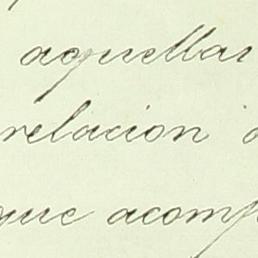 aquellas
relacion
que acomp